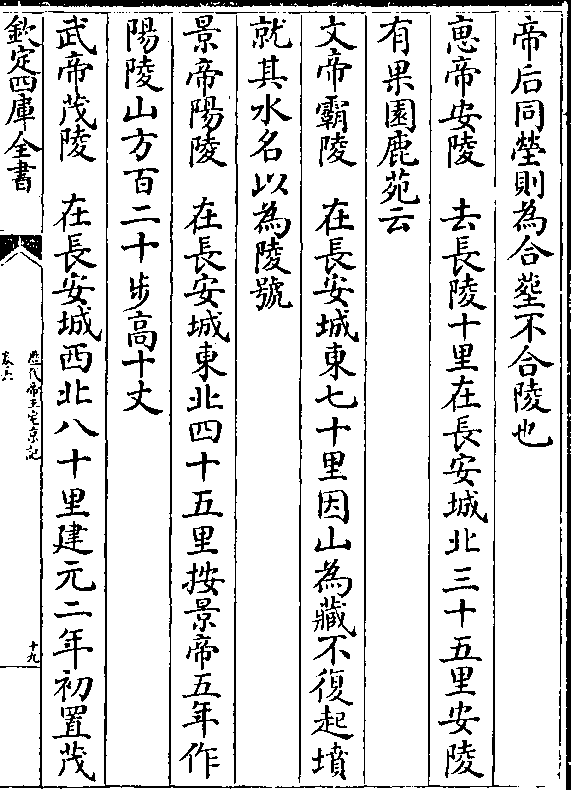 帝后同塋則為合塟不合陵也
恵帝安陵　去長陵十里在長安城北三十五里安陵
有果園鹿苑云
文帝霸陵　在長安城東七十里因山為藏不復起墳
就其水名以為陵號
景帝陽陵　在長安城東北四十五里按景帝五年作
陽陵山方百二十步高十丈
武帝茂陵　在長安城西北八十里建元二年初置茂
欽定四庫全書
歴代帝王宅京記
卷六
十九